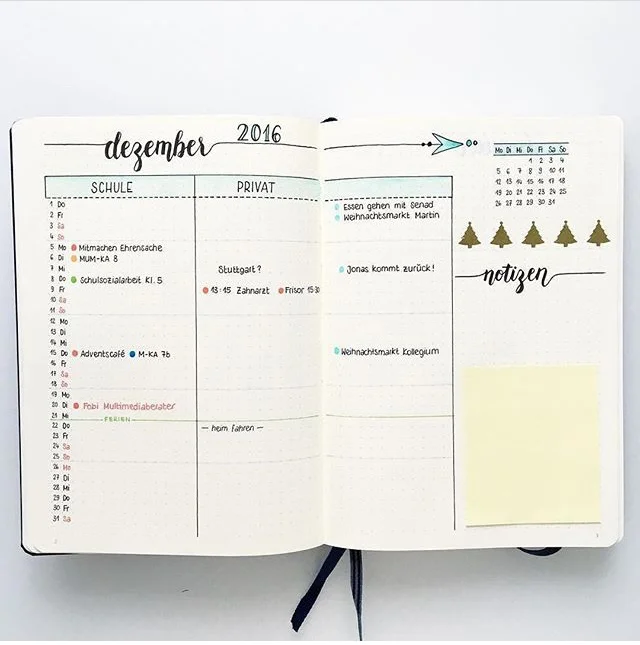 dezember 2016
SCHULE PRIVAT
1 Do Essen gehen mit Senad
2 Fr Weihnachtsmarkt Martin
3 Sa
4 So
5 Mo Mitmachen Ehrensache
6 Di MUM-KA 8
7 Mi Stuttgart? Jonas kommt zurück!
8 Do Schulsozialarbeit Kl. 5
9 Fr 13:15 Zahnarzt Frisör 15:30
10 Sa
11 So
12 Mo
13 Di
14 Mi
15 Do Adventscafé M-KA 7b Weihnachtsmarkt Kollegium
16 Fr
17 Sa
18 So
19 Mo
20 Di Fobi Multimediaberater
21 Mi
FERIEN
22 Do – heim fahren –
23 Fr
24 Sa
25 So
26 Mo
27 Di
28 Mi
29 Do
30 Fr
31 Sa
Mo Di Mi Do Fr Sa So
1 2 3 4
5 6 7 8 9 10 11
12 13 14 15 16 17 18
19 20 21 22 23 24 25
26 27 28 29 30 31
notizen